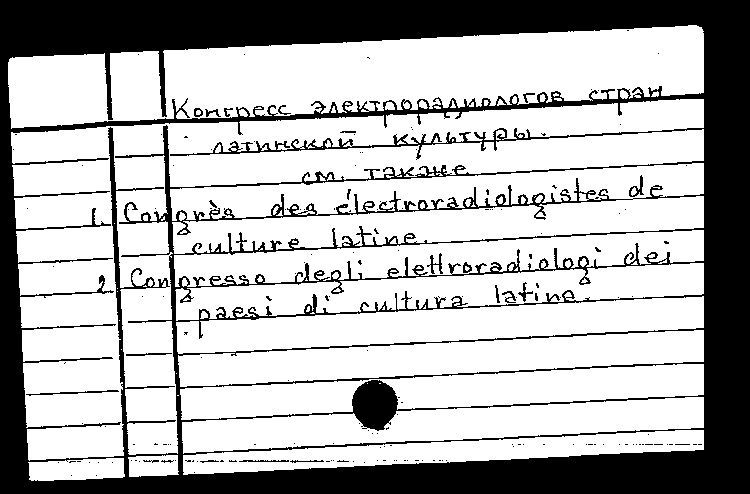 Конгресс электрорадиологов стран
латинской культуры.
см. также
1. Congrès des électroradiologistes de
culture latine.
2. Congresso degli elettroradiologi dei
paesi di cultura latina.